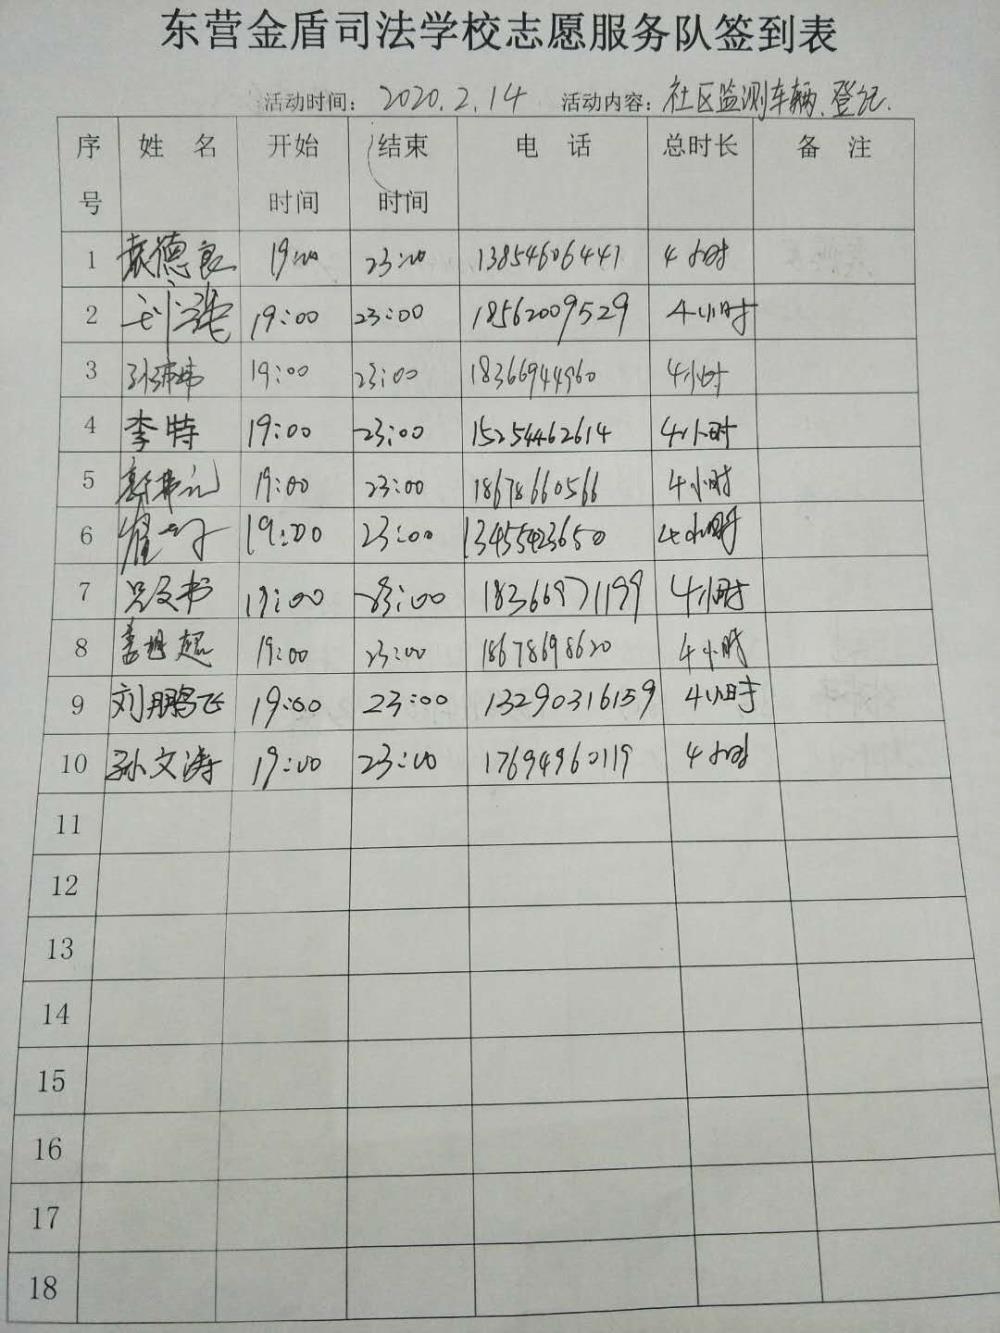 东营金盾司法学校志愿服务队签到表
活动时间: 2020.2.14 活动内容: 社区监测车辆、登记.
序号 姓名 开始时间 结束时间 电话 总时长 备注
1 袁德良 19:00 23:00 13854606441 4小时
2 19:00 23:00 18562009529 4小时
3 19:00 23:00 18366944960 4小时
4 李特 19:00 23:00 15254462614 4小时
5 19:00 23:00 18678660566 4小时
6 19:00 23:00 13455423650 4小时
7 19:00 23:00 18366971199 4小时
8 19:00 23:00 18678698620 4小时
9 刘鹏飞 19:00 23:00 13290316159 4小时
10 孙文涛 19:00 23:00 17694960119 4小时
11
12
13
14
15
16
17
18